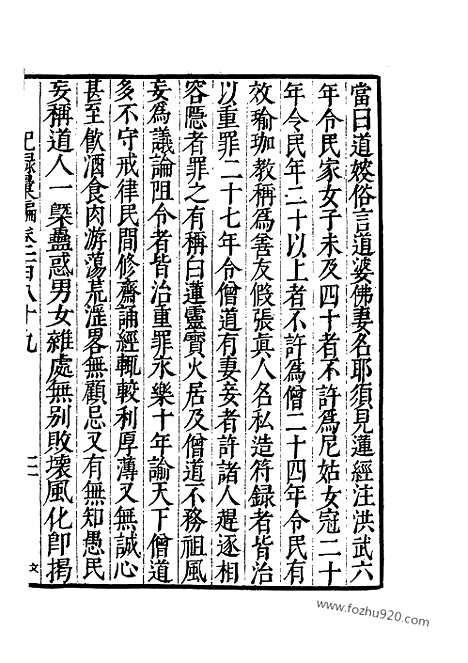 當曰道嫂俗言道婆佛妻名耶須見蓮經注洪武六
年令民家女子未及四十者不許爲尼姑女冠二十
年令民年二十以上者不許爲僧二十四年令民有
效瑜珈教稱爲善友假張眞人名私造符録者皆治
以重罪二十七年令僧道有妻妾者許諸人趕逐相
容隱者罪之有稱曰蓮靈寳火居及僧道不務祖風
妄爲議論阻令者皆治重罪永樂十年諭天下僧道
多不守戒律民間修齋誦經輒較利厚薄又無誠心
甚至飲酒食肉游蕩荒滛畧無顧忌又有無知愚民
妄稱道人一槩蠱惑男女雜處無别敗壞風化卽揭
紀録彙編 卷二百八十九 三 文
www.fozhu920.com